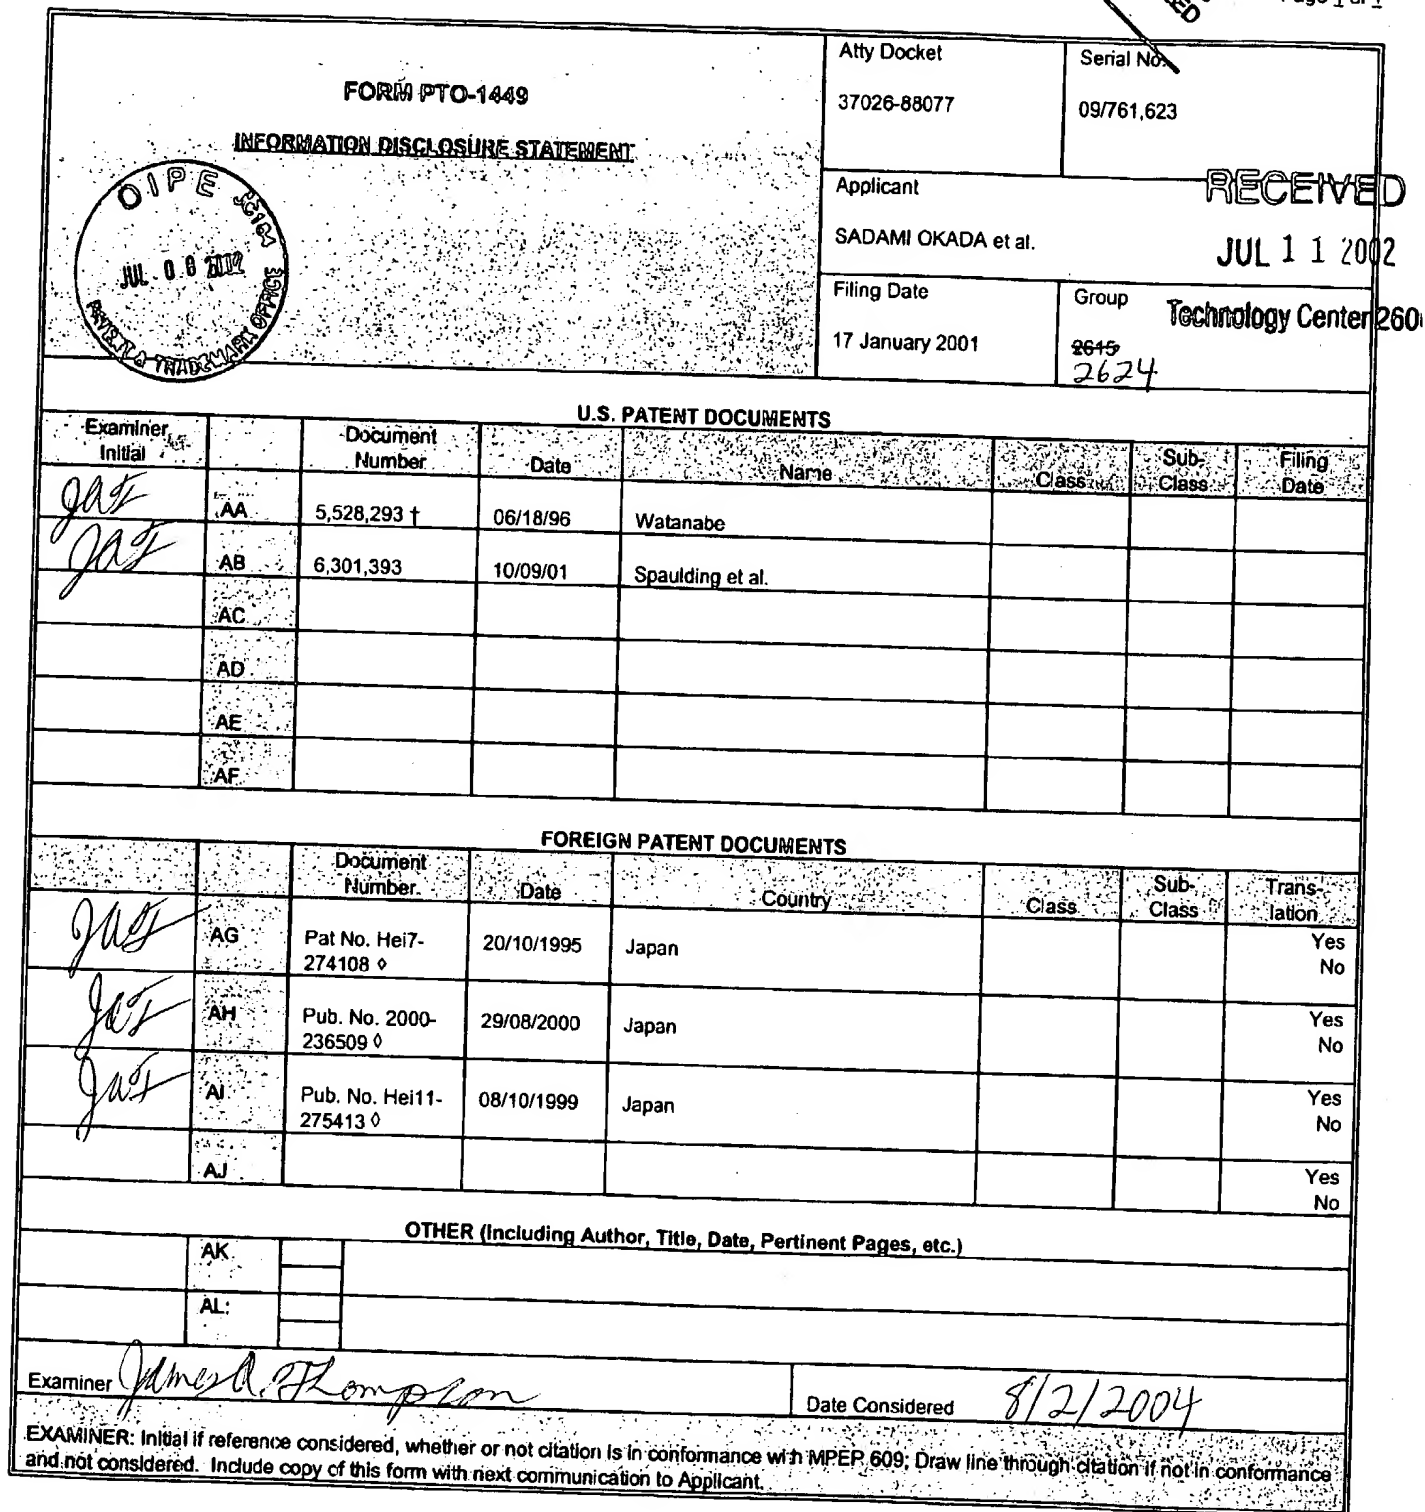 Page 1 of 1
Atty Docket
Serial No.
FORM PTO-1449
37026-88077
09/761,623
INFORMATION DISCLOSURE STATEMENT
OIPE JC164
JUL 08 2002
PATENT & TRADEMARK OFFICE
Applicant
RECEIVED
SADAMI OKADA et al.
JUL 11 2002
Filing Date
Group
Technology Center 260
17 January 2001
2615
2624
U.S. PATENT DOCUMENTS
Examiner Initial
Document Number
Date
Name
Class
Sub-Class
Filing Date
JAT
AA
5,528,293 †
06/18/96
Watanabe
JAT
AB
6,301,393
10/09/01
Spaulding et al.
AC
AD
AE
AF
FOREIGN PATENT DOCUMENTS
Document Number
Date
Country
Class
Sub-Class
Trans-lation
JAT
AG
Pat No. Hei7-
274108 ◊
20/10/1995
Japan
Yes
No
JAT
AH
Pub. No. 2000-
236509 ◊
29/08/2000
Japan
Yes
No
JAT
AI
Pub. No. Hei11-
275413 ◊
08/10/1999
Japan
Yes
No
AJ
Yes
No
OTHER (Including Author, Title, Date, Pertinent Pages, etc.)
AK
AL:
Examiner James A. Thompson
Date Considered 8/2/2004
EXAMINER: Initial if reference considered, whether or not citation is in conformance with MPEP 609; Draw line through citation if not in conformance
and not considered. Include copy of this form with next communication to Applicant.